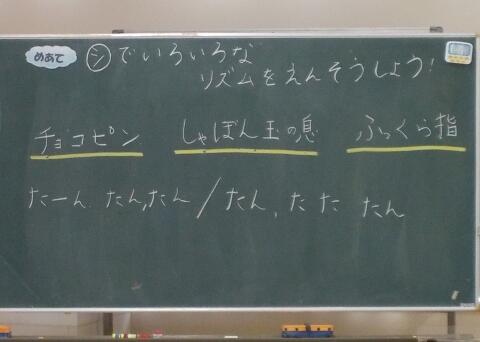 めあて シでいろいろな
リズムをえんそうしよう！
チョコピン しゃぼん玉の息 ふっくら指
たーん たん,たん / たん、たた たん